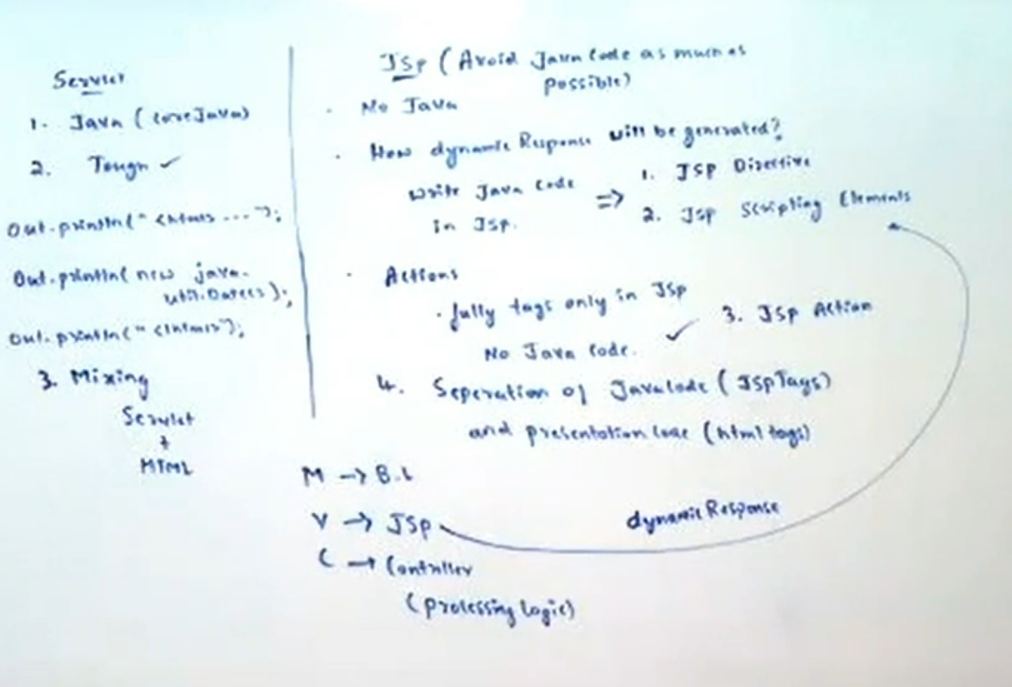 Servlet
1. Java (core Java)
2. Tough ✓
Out.println("<html> ---");
Out.println(new java.
util.Date());
Out.println("</html>");
3. Mixing
Servlet
+
HTML
JSP (Avoid Java Code as much as
possible)
. No Java
. How dynamic Response will be generated?
Write Java Code
in JSP.
⇒ 1. JSP Directive
2. JSP Scripting Elements
. Actions
. fully tags only in JSP
No Java Code. ✓
3. JSP Action
4. Seperation of Java Code (JSP Tags)
and presentation Code (html tags)
M → B.L
V → JSP
dynamic Response
C → Controller
(processing logic)